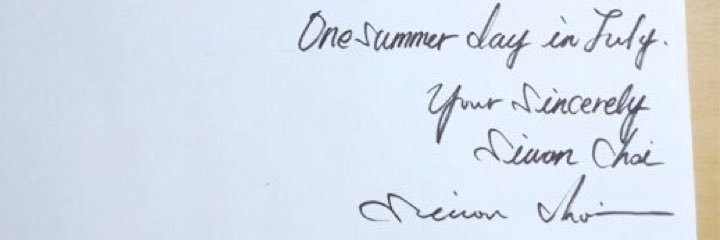 One summer day in July.
Your Sincerely
Siwon Choi
Siwon Choi